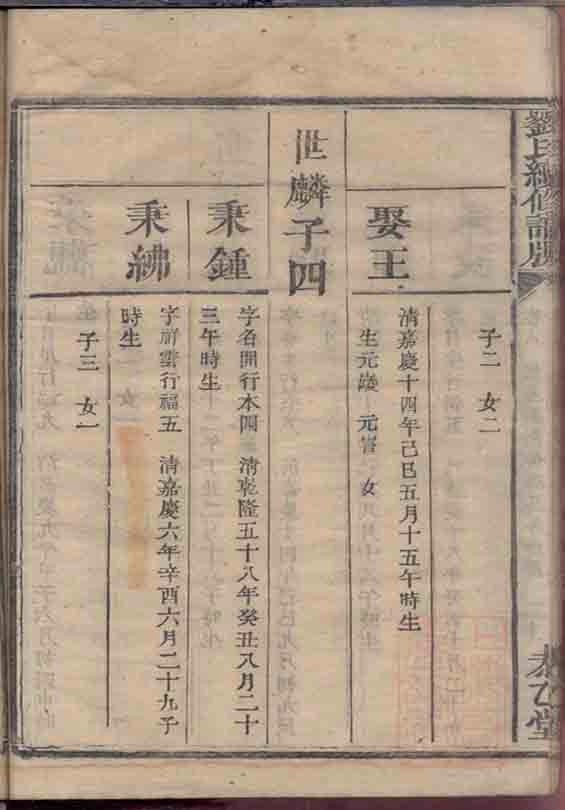 劉氏續修譜牒
恭乙堂
子二 女二
娶王
清嘉慶十四年己巳五月十五午時生
生元 元 女
世麟子四
秉鍾
字名開行本四 清乾隆五十八年癸丑八月二十
三午時生
秉紼
字祥雲行福五 清嘉慶六年辛酉六月二十九子
時生
子三 女一